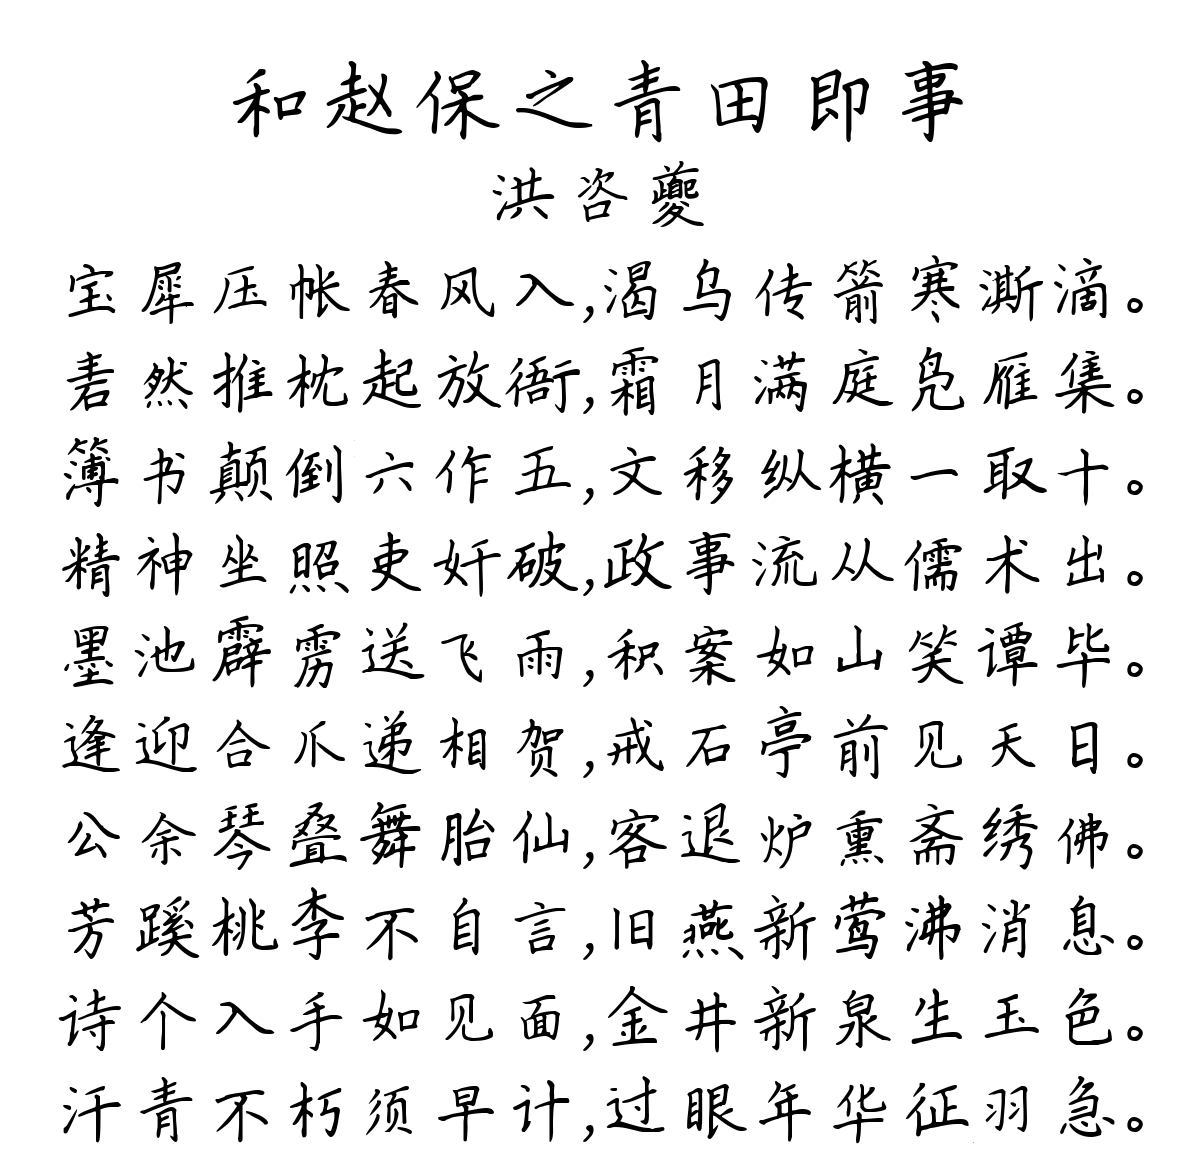 和赵保之青田即事
洪咨夔
宝犀压帐春风入,渴乌传箭寒澌滴。
砉然推枕起放衙,霜月满庭凫雁集。
簿书颠倒六作五,文移纵横一取十。
精神坐照吏奸破,政事流从儒术出。
墨池霹雳送飞雨,积案如山笑谭毕。
逢迎合爪递相贺,戒石亭前见天日。
公余琴叠舞胎仙,客退炉熏斋绣佛。
芳蹊桃李不自言,旧燕新莺沸消息。
诗个入手如见面,金井新泉生玉色。
汗青不朽须早计,过眼年华征羽急。